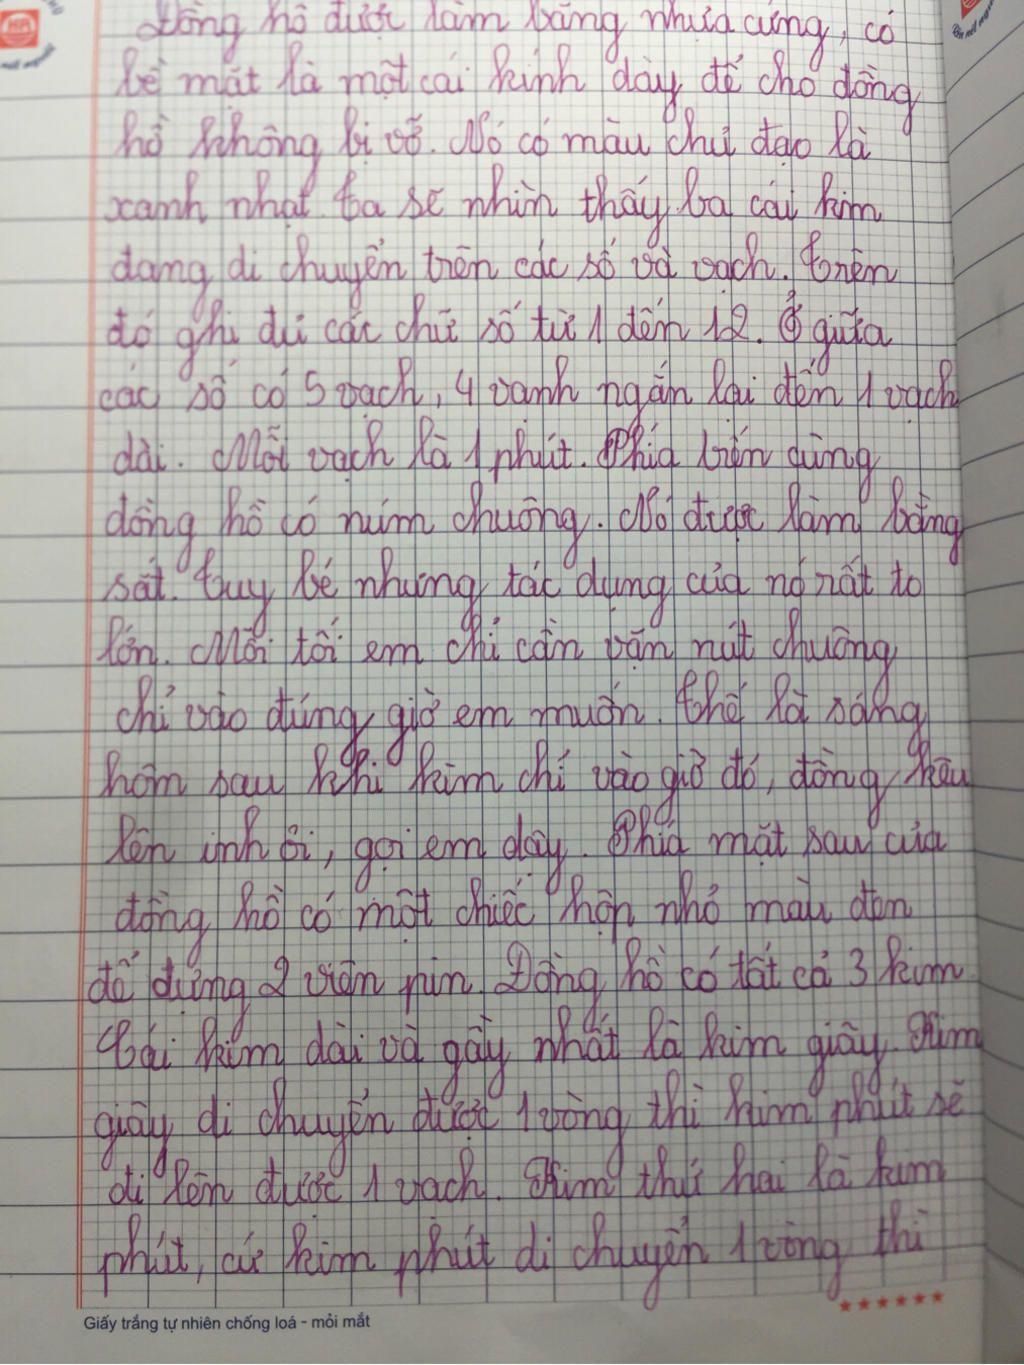 Đồng hồ được làm bằng nhựa cứng, có
bề mặt là một cái kính dày để cho đồng
hồ không bị vỡ. Nó có màu chủ đạo là
xanh nhạt. Ta sẽ nhìn thấy ba cái kim
đang di chuyển trên các số và vạch. Trên
đó ghi đủ các chữ số từ 1 đến 12. Ở giữa
các số có 5 vạch, 4 vanh ngắn lại đến 1 vạch
dài. Mỗi vạch là 1 phút. Phía trên cùng
đồng hồ có núm chuông. Nó được làm bằng
sắt. Tuy bé nhưng tác dụng của nó rất to
lớn. Mỗi tối em chỉ cần vặn nút chuông
chỉ vào đúng giờ em muốn. Thế là sáng
hôm sau khi kim chỉ vào giờ đó, đồng kêu
lên inh ỏi, gọi em dậy. Phía mặt sau của
đồng hồ có một chiếc hộp nhỏ màu đen
để đựng 2 viên pin. Đồng hồ có tất cả 3 kim.
Cái kim dài và gầy nhất là kim giây. Kim
giây di chuyển được 1 vòng thì kim phút sẽ
đi lên được 1 vạch. Kim thứ hai là kim
phút, cứ kim phút di chuyển 1 vòng thì
Giấy trắng tự nhiên chống loá - mỏi mắt